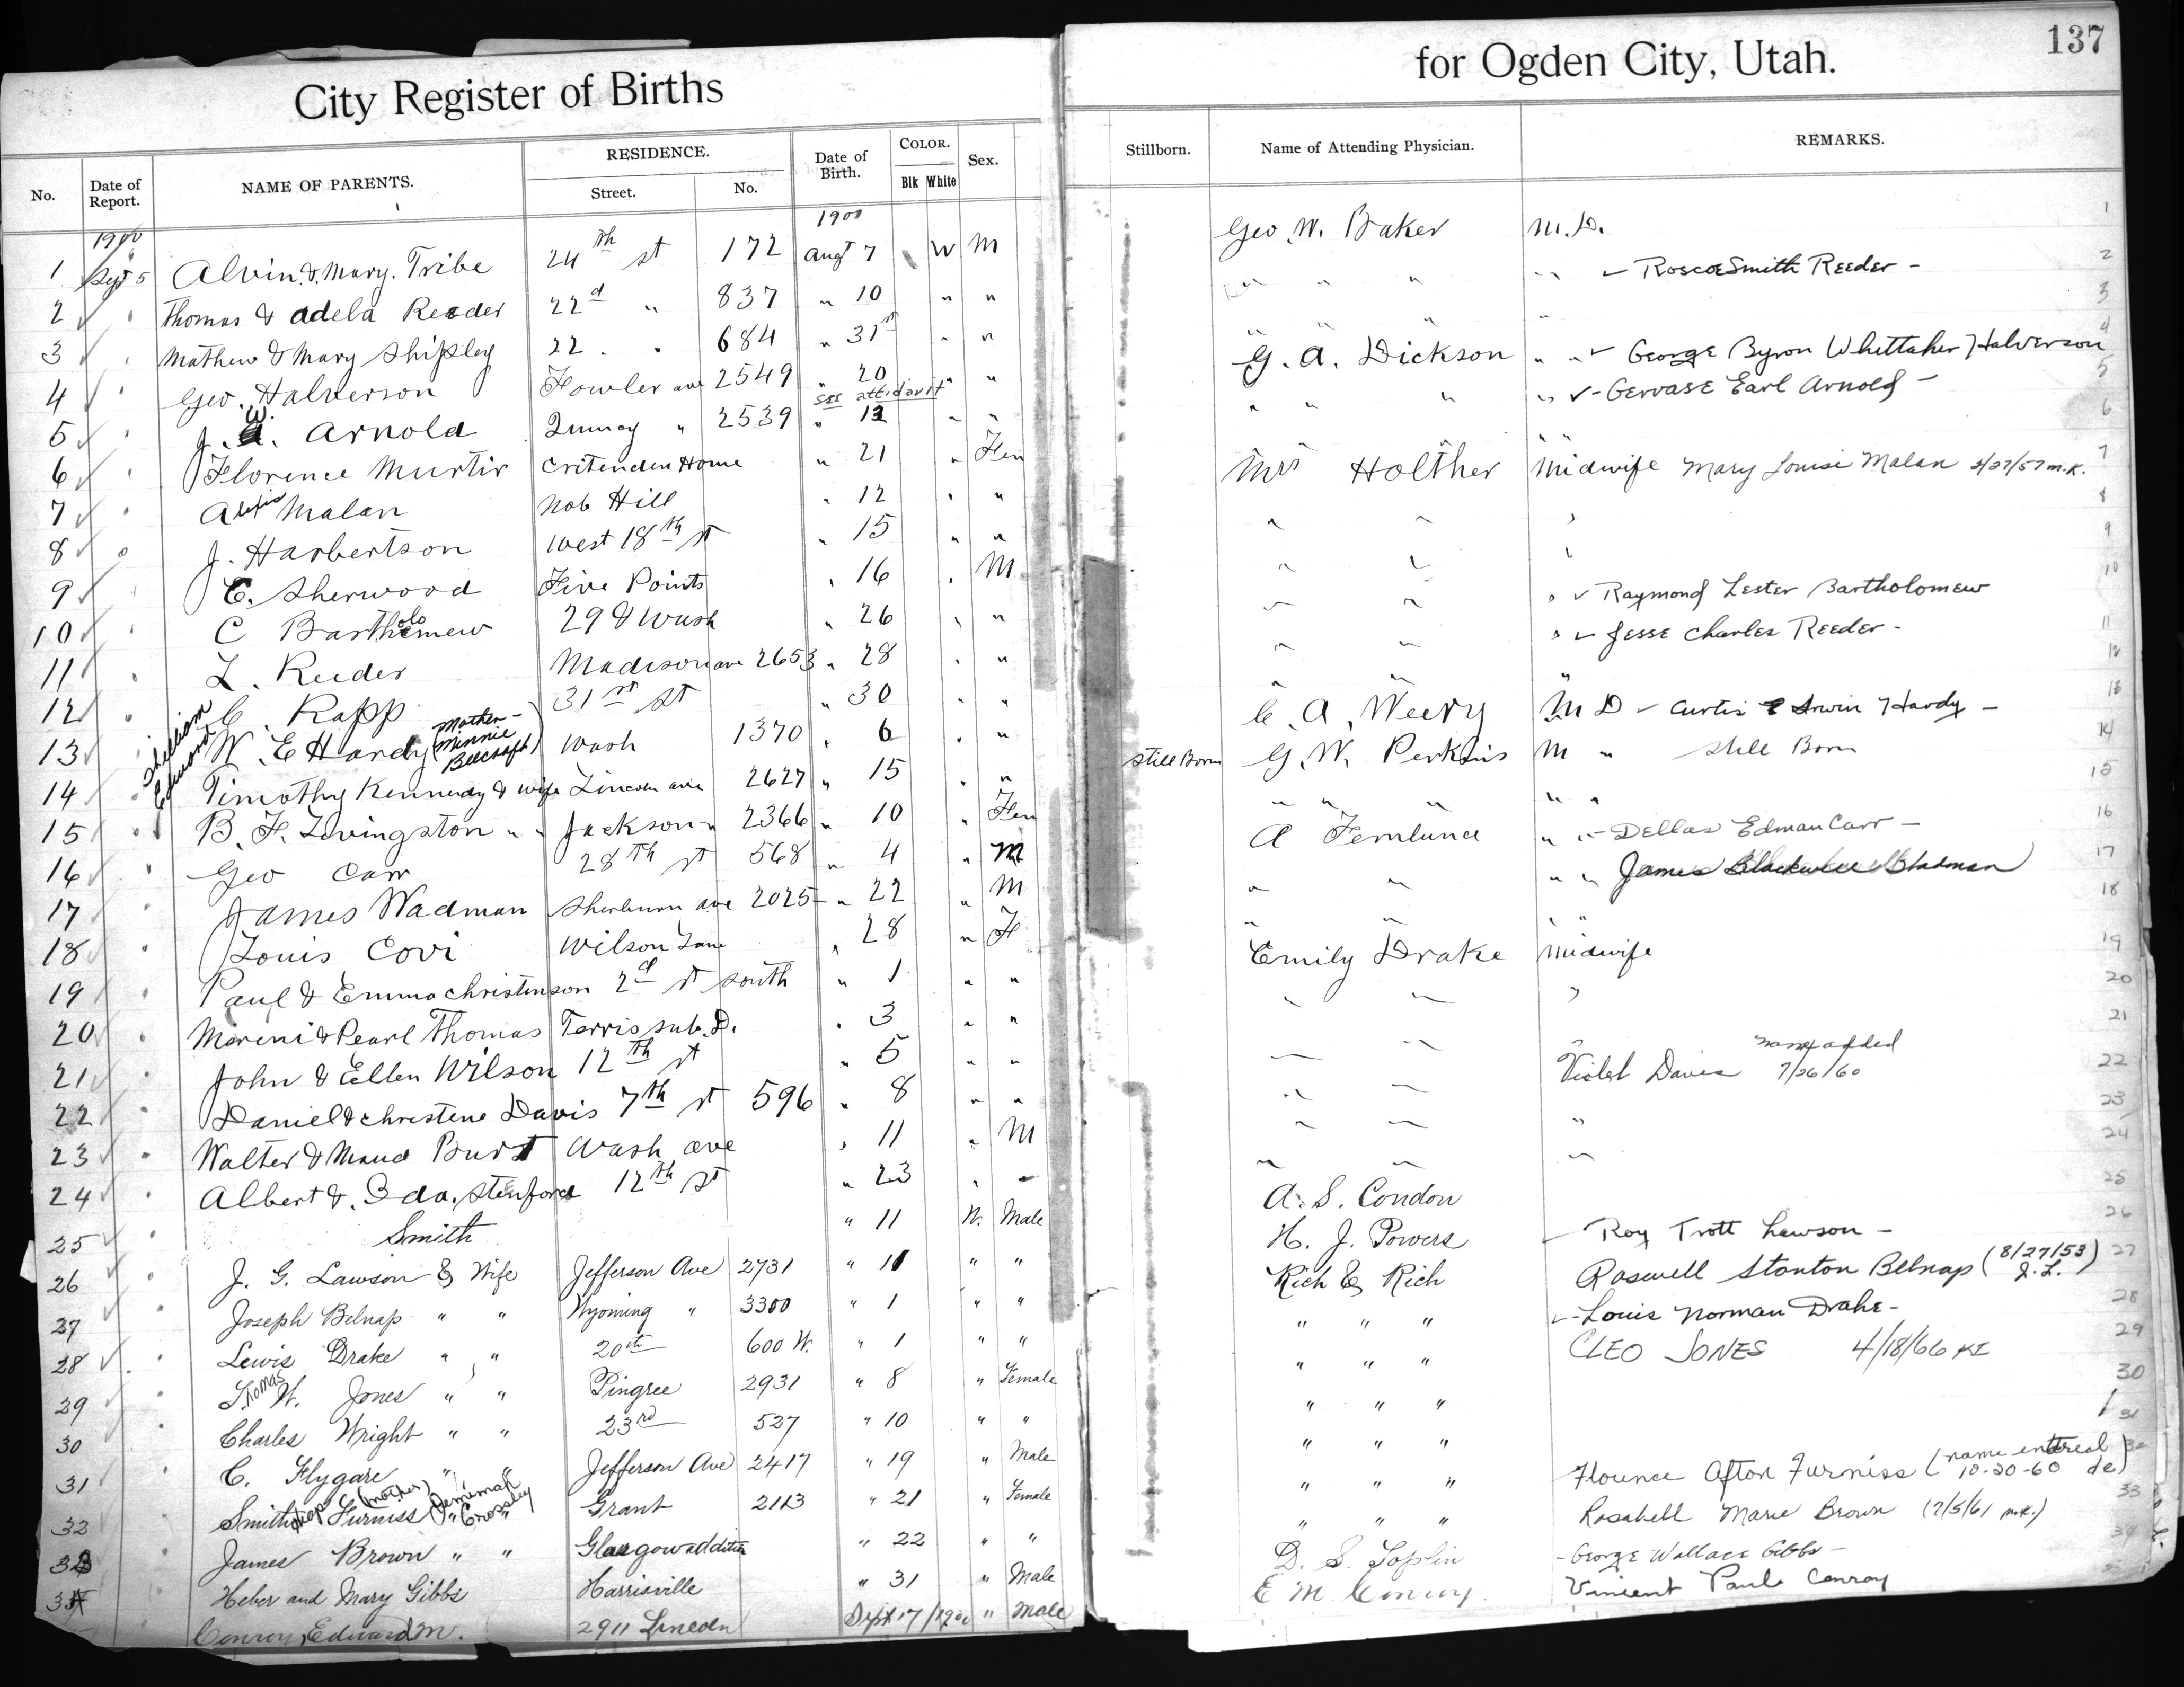 City Register of Births
for Ogden City, Utah.
137
No.
Date of Report.
NAME OF PARENTS.
RESIDENCE.
Street.
No.
Date of Birth.
COLOR.
Blk White
Sex.
Stillborn.
Name of Attending Physician.
REMARKS.
1900 1900
1 Sept 5 Alvin & Mary. Tribe 24th st 172 Augt 7 W M Geo. W. Baker M.D. 1
2 " Thomas & Adela Reeder 22d " 837 " 10 " " " " " " Roscoe Smith Reeder - 2
3 " Mathew & Mary Shipley 22 " " 684 " 31st " " " " " " 3
4 " Geo. Halverson Fowler ave 2549 " 20 " " G. A. Dickson " " George Byron Whittaher Halverson 4
see affidavit
5 " J. W. Arnold Quincy " 2539 " 13 " " " " " " Gervase Earl Arnold - 5
6 " Florence Murtir Critenden Home " 21 " Fem " " " " " 6
7 " Alexis Malan Nob Hill " 12 " " Mrs Holther Midwife Mary Louise Malan 2/27/57 m.K. 7
8 " J. Harbertson West 18th st " 15 " " " " " 8
9 " C. Sherwood Five Points " 16 " M " " " 9
10 " C Bartholomew 29 & Wash " 26 " " " " " Raymond Lester Bartholomew 10
11 " L. Reeder Madison ave 2653 " 28 " " " " " Jesse Charles Reeder - 11
12 " C. Rapp 31st st " 30 " " " " " 12
13 William Edward W. E Hardy (Mother - Minnie Beecraft) Wash 1370 " 6 " " C. A. Weery M D Curtis Irwin Hardy - 13
14 " Timothy Kennedy & wife Lincoln ave 2627 " 15 " " Still Born G. W. Perkins M " Still Born 14
15 " B. F. Livingston " " Jackson " 2366 " 10 " Fem " " " " " 15
16 " Geo Carr 28th st 568 " 4 " M A Fernlund " " Dellas Edman Carr - 16
17 " James Wadman Sherburn ave 2025 " 22 " M " " " " James 17
18 " Louis Covi Wilson Lane " 28 " F " " " " 18
19 " Paul & Emma Christenson 2d st South " 1 " " Emily Drake Midwife 19
20 " Moroni & Pearl Thomas Terris sub. D. " 3 " " " " " 20
21 " John & Ellen Wilson 12th st " 5 " " " " " 21
22 " Daniel & Christene Davis 7th st 596 " 8 " " " " Violet Davis name added 7/26/60 22
23 " Walter & Maud Burst Wash ave " 11 " M " " " 23
24 " Albert & Ida. Stenford 12th st " 23 " " " " " 24
25 " Smith " 11 W. Male A. S. Condon 25
26 " J. G. Lawson & Wife Jefferson Ave 2731 " 11 " " H. J. Powers Roy Trott Lawson - 26
27 Joseph Belnap " " Wyoming " 3300 " 1 " " Rich & Rich Roswell Stanton Belnap (8/27/53 J.L.) 27
28 Lewis Drake " " 20th 600 W. " 1 " " " " " Louis Norman Drake - 28
29 Thomas W. Jones " " Pingree 2931 " 8 " Female " " " CLEO JONES 4/18/66 KI 29
30 Charles Wright " " 23rd 527 " 10 " " " " " 30
31 C. Flygare " " Jefferson Ave 2417 " 19 " Male " " " 31
32 Smith Furniss (mother) Jemimah Crossley Grant 2113 " 21 " Female " " " Florence Afton Furniss (name entered 10-20-60 de) 32
33 James Brown " " Glasgow addition " 22 " " " " " Rosabell Marie Brown (7/5/61 m.k.) 33
34 Heber and Mary Gibbs Harrisville " 31 " Male D. S. Joplin - George Wallace Gibbs - 34
Conroy, Edward M. 2911 Lincoln Sept 17/1900 " Male E M Conroy. Vincent Paul Conroy